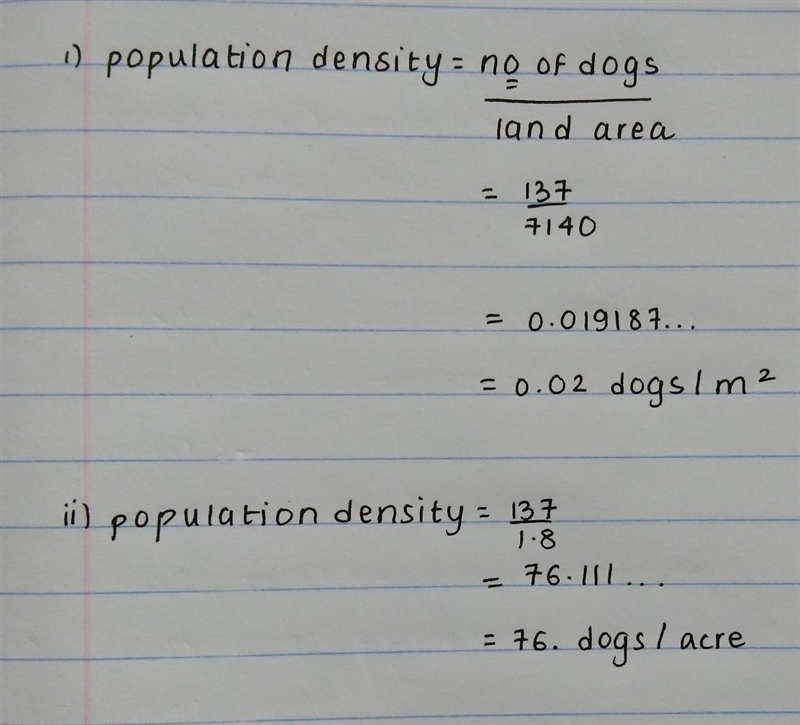 i) population density = no of dogs
land area
= 137
7140
= 0.019187...
= 0.02 dogs/m²
ii) population density = 137
1.8
= 76.111...
= 76. dogs/acre